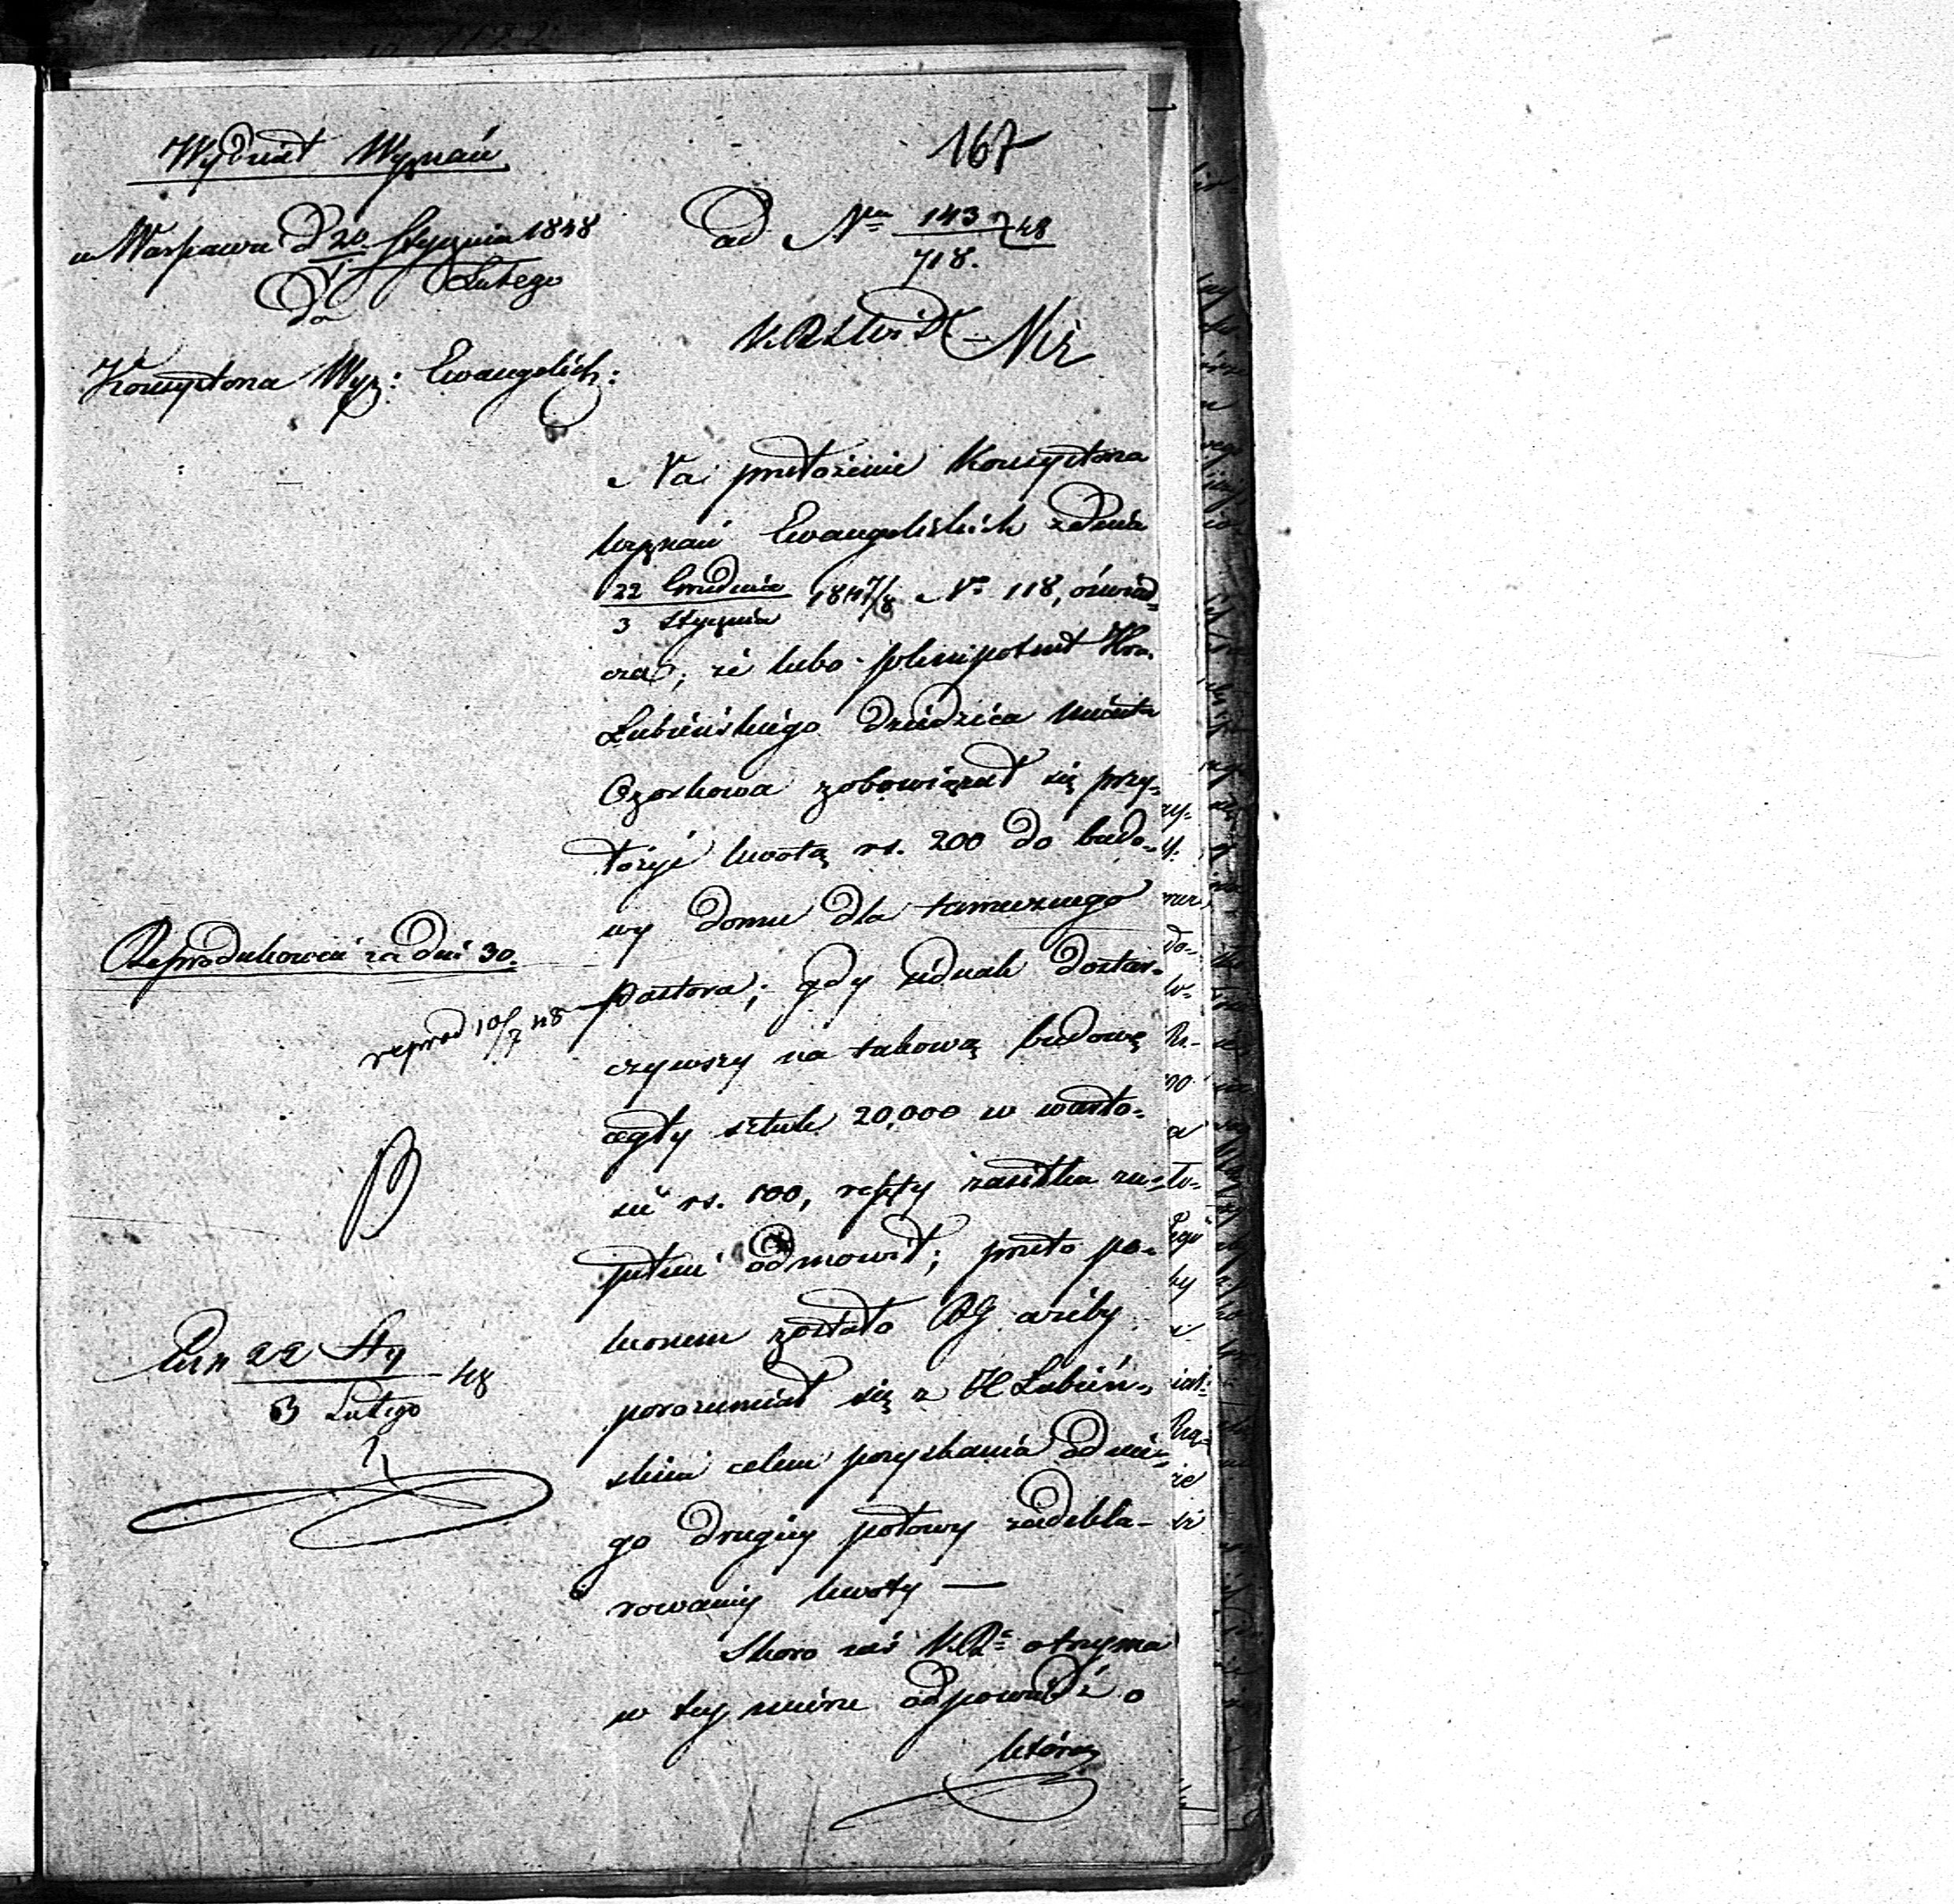 Wydział Wyznań
167
w Warszawie d 20 Stycznia 1848
1 Lutego
do
Konsystorza Wyz: Ewangelick:
ad Nr 143/718. 48
Na przełożenie Konsystorza
Wyznań Ewangelickich z dnia
22 Grudnia / 3 Stycznia 1847/8 No 118, oświad=
cza, że lubo plenipotent Hra.
Łubieńskiego dziedzica miasta
Ozorkowa zobowiązał się przy=
łożyć kwotą rs. 200 do budo=
wy domu dla tamecznego
Pastora; gdy jednak dostar=
czywszy na takową budowę
cegły sztuk 20,000 w warto=
ści rs. 100, reszty zasiłku zu=
pełnie odmówił; przeto po=
lecono zostało RG ażeby
porozumiał się z H Łubień=
skim celem pozyskania od nie=
go drugiej połowy zadekla=
rowanej kwoty —
Skoro zaś KR otrzyma
w tej mierze odpowiedź o
której
Reprodukować za dni 30.
reprod 10/7 48
22 Sty / 3 Lutego 48